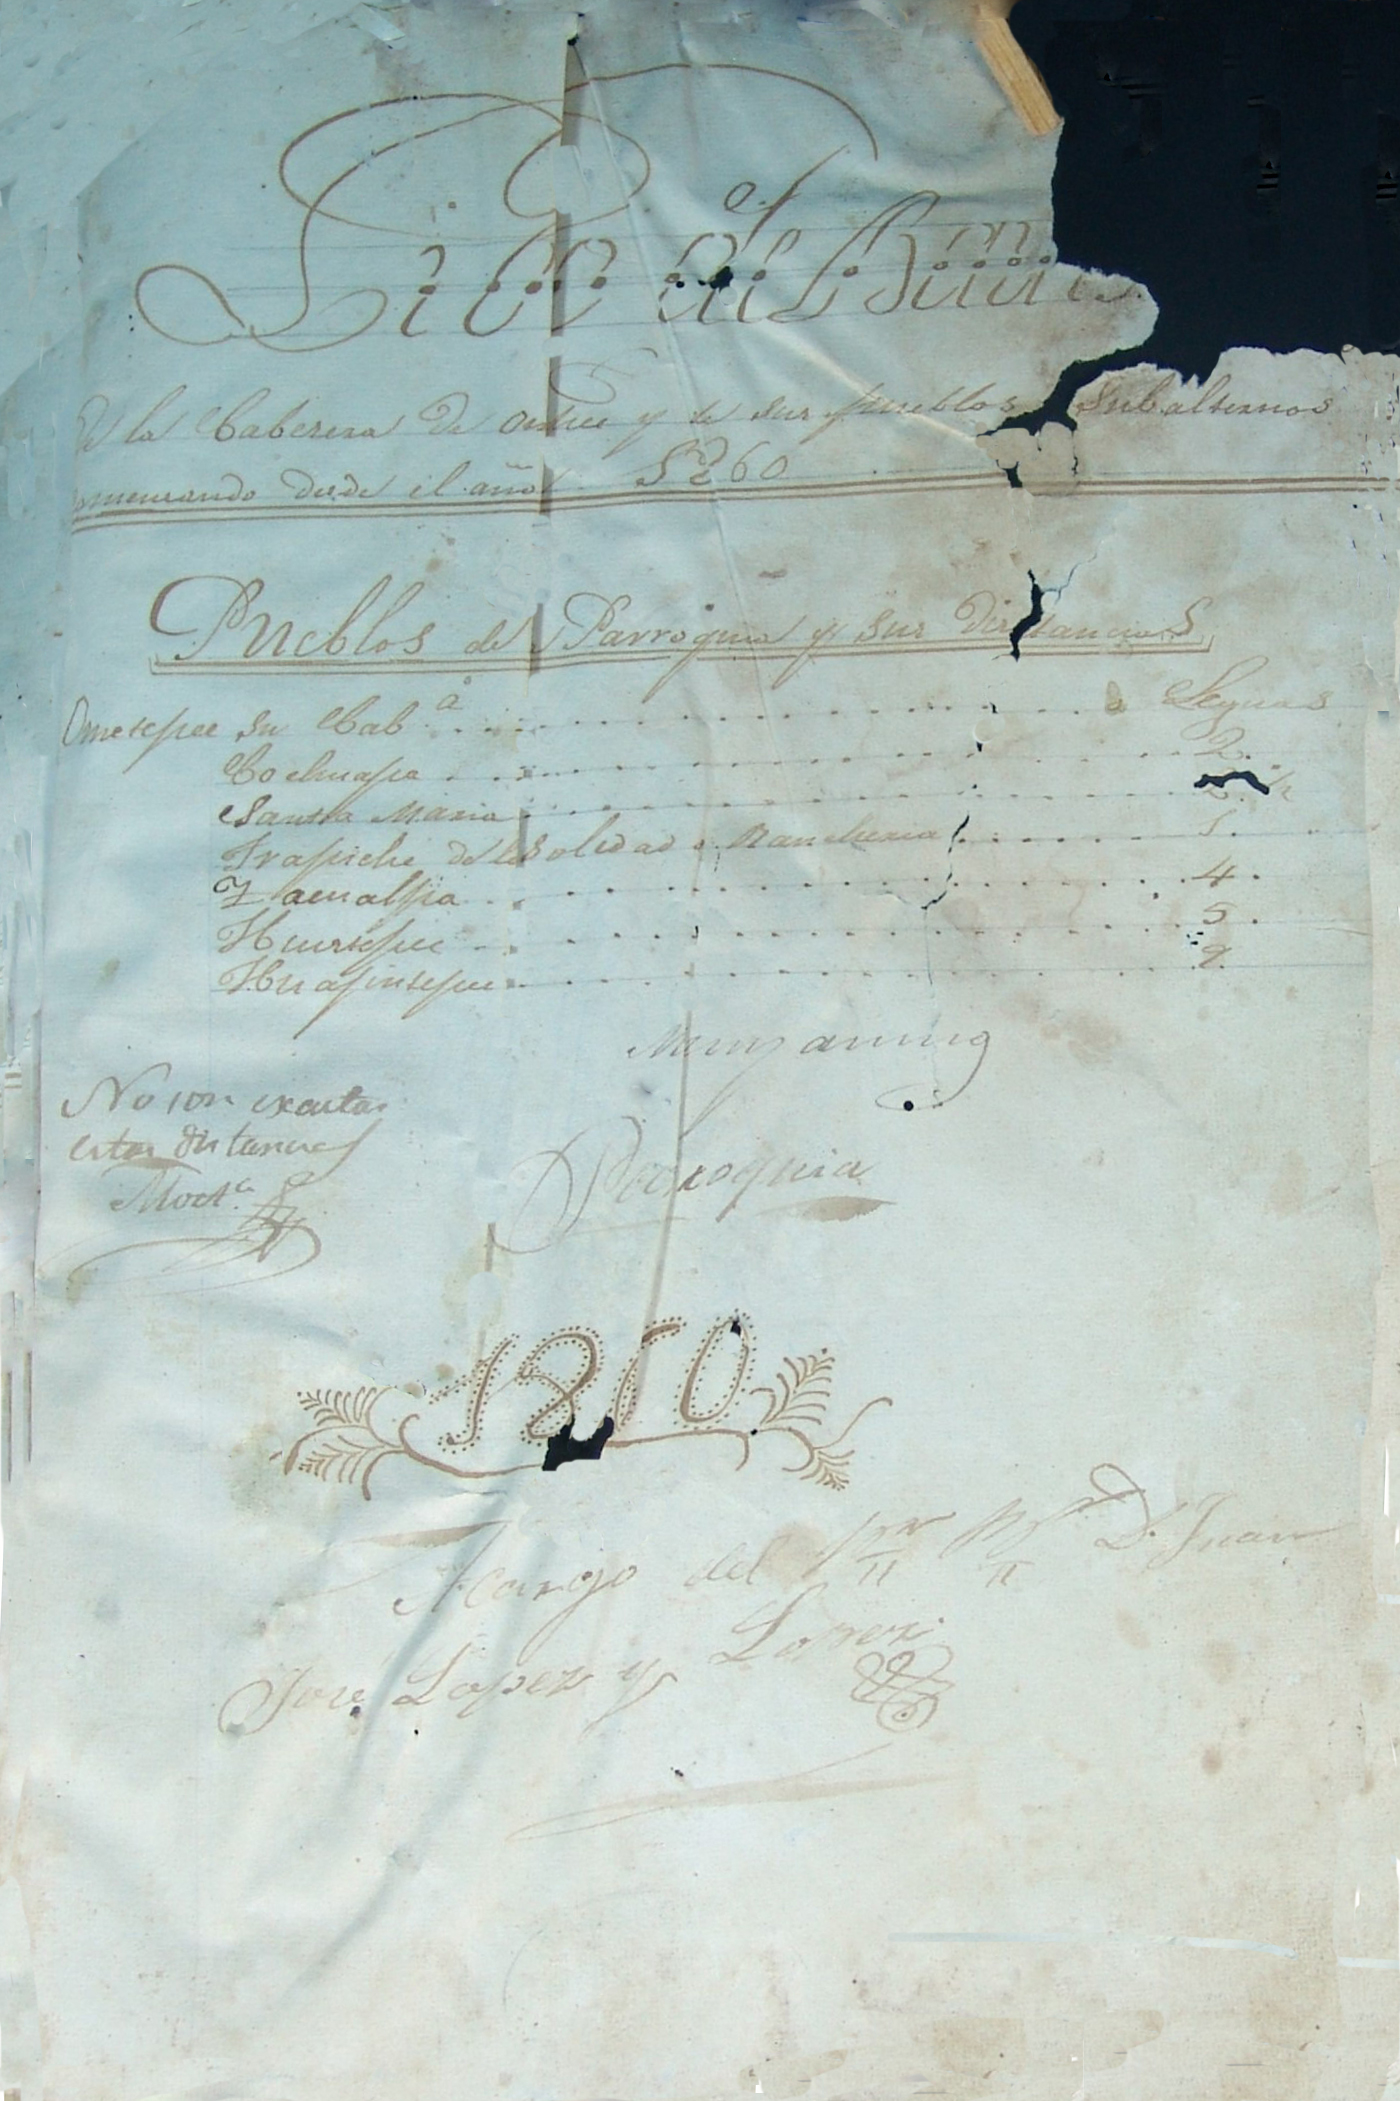 Libro de Bautis
de la Cabecera de Ometepec y de sus pueblos subalternos
comensando desde el año 1860
Pueblos de Parroquia y sus Distancias
Ometepec su Cab.a a Leguas
Cochuapa 2.
Santa Maria 2. ½
Trapiche de la Soledad o Rancheria 1.
Zacualpa 4.
Huistepec 5.
Huajintepec 9.
Muy
No son exactas
estas distancias
Moct.a
Parroquia
1860
A cargo del Sr D. Juan
José Lopez y Lopez